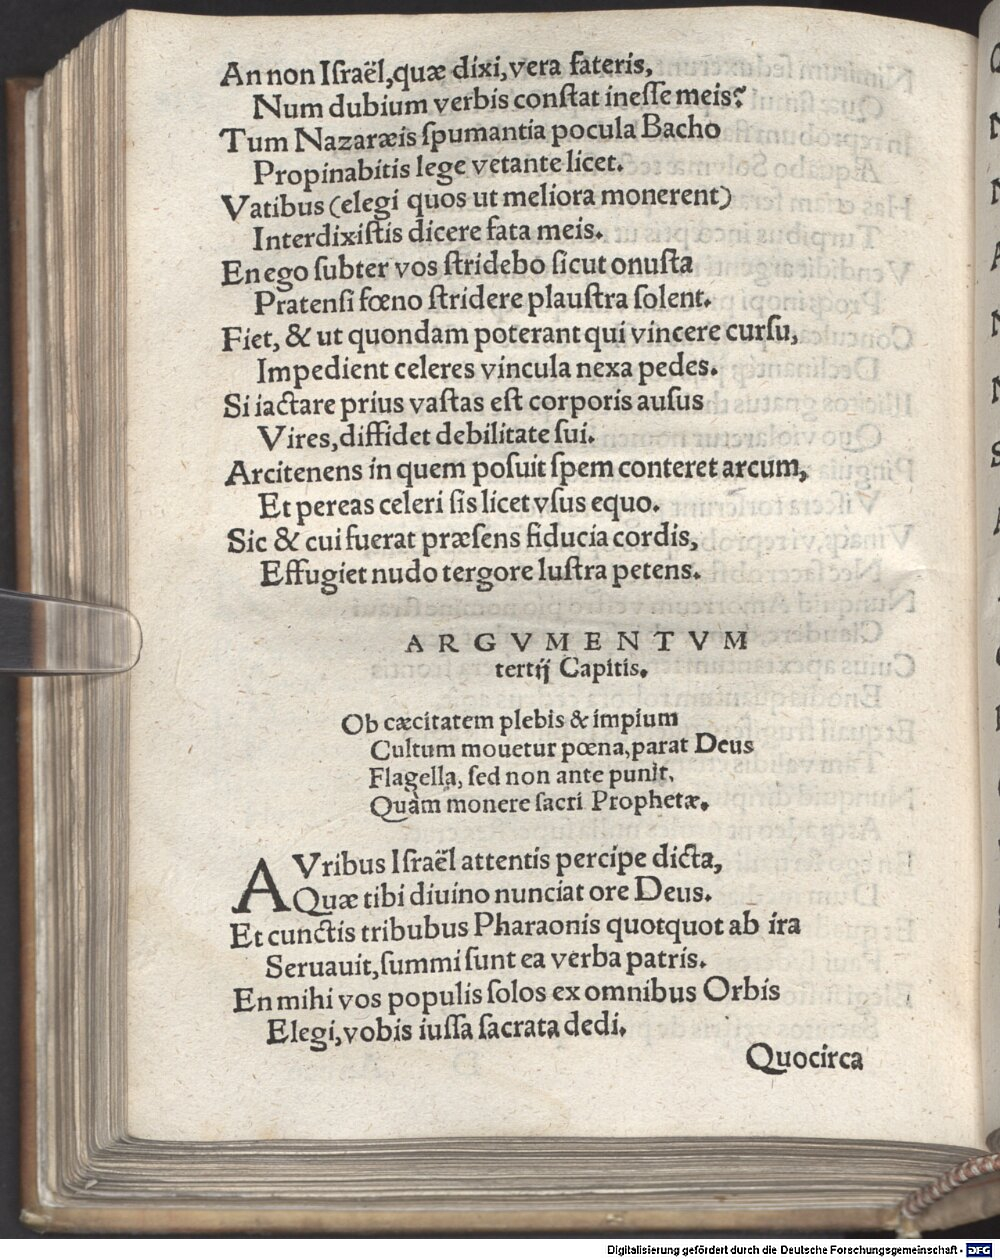 An non Iſraël, quæ dixi, vera fateris,
Num dubium verbis conſtat ineſſe meis?
Tum Nazaræis ſpumantia pocula Bacho
Propinabitis lege vetante licet.
Vatibus (elegi quos ut meliora monerent)
Interdixiſtis dicere fata meis.
En ego ſubter vos ſtridebo ſicut onuſta
Pratenſi fœno ſtridere plauſtra ſolent.
Fiet, & ut quondam poterant qui vincere curſu,
Impedient celeres vincula nexa pedes.
Si iactare prius vaſtas eſt corporis auſus
Vires, diffidet debilitate ſui.
Arcitenens in quem poſuit ſpem conteret arcum,
Et pereas celeri ſis licet vſus equo.
Sic & cui fuerat præſens fiducia cordis,
Effugiet nudo tergore luſtra petens.
ARGVMENTVM
tertij Capitis.
Ob cæcitatem plebis & impium
Cultum mouetur pœna, parat Deus
Flagella, ſed non ante punit,
Quàm monere ſacri Prophetæ.
AVribus Iſraël attentis percipe dicta,
Quæ tibi diuino nunciat ore Deus.
Et cunctis tribubus Pharaonis quotquot ab ira
Seruauit, ſummi ſunt ea verba patris.
En mihi vos populis ſolos ex omnibus Orbis
Elegi, vobis iuſſa ſacrata dedi.
Quocirca
Digitalisierung gefördert durch die Deutsche Forschungsgemeinschaft - DFG